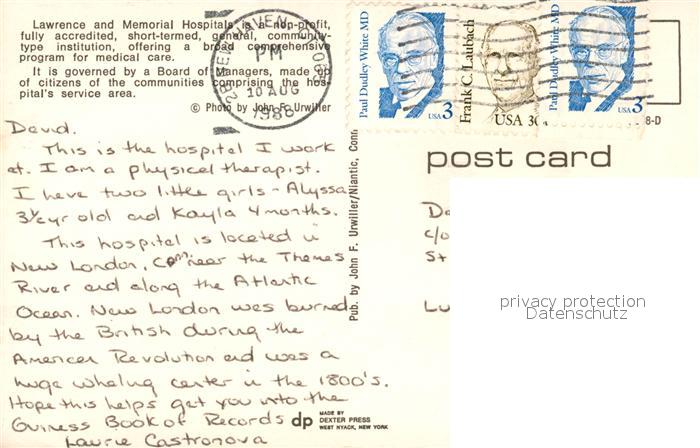 Lawrence and Memorial Hospitals is a non-profit,
fully accredited, short-termed, general, community-
type institution, offering a broad comprehensive
program for medical care.
It is governed by a Board of Managers, made up
of citizens of the communities comprising the hos-
pital's service area.
© Photo by John F. Urwiller
NEW HAVEN
PM
10 AUG
1988
Paul Dudley White MD
USA 3
Frank C. Laubach
USA 30
Paul Dudley White MD
USA 3
8-D
post card
David.
This is the hospital I work
at. I am a physical therapist.
I have two little girls - Alyssa
3½ yr old and Kayla 4 months.
This hospital is located in
New London, Conn near the Themes
River and along the Atlantic
Ocean. New London was burned
by the British during the
American Revolution and was a
huge whaling center in the 1800's.
Hope this helps get you into the
Guiness Book of Records
Laurie Castronova
Pub. by John F. Urwiller/Niantic, Conn
c/o
St
privacy protection
Datenschutz
dp
MADE BY
DEXTER PRESS
WEST NYACK, NEW YORK